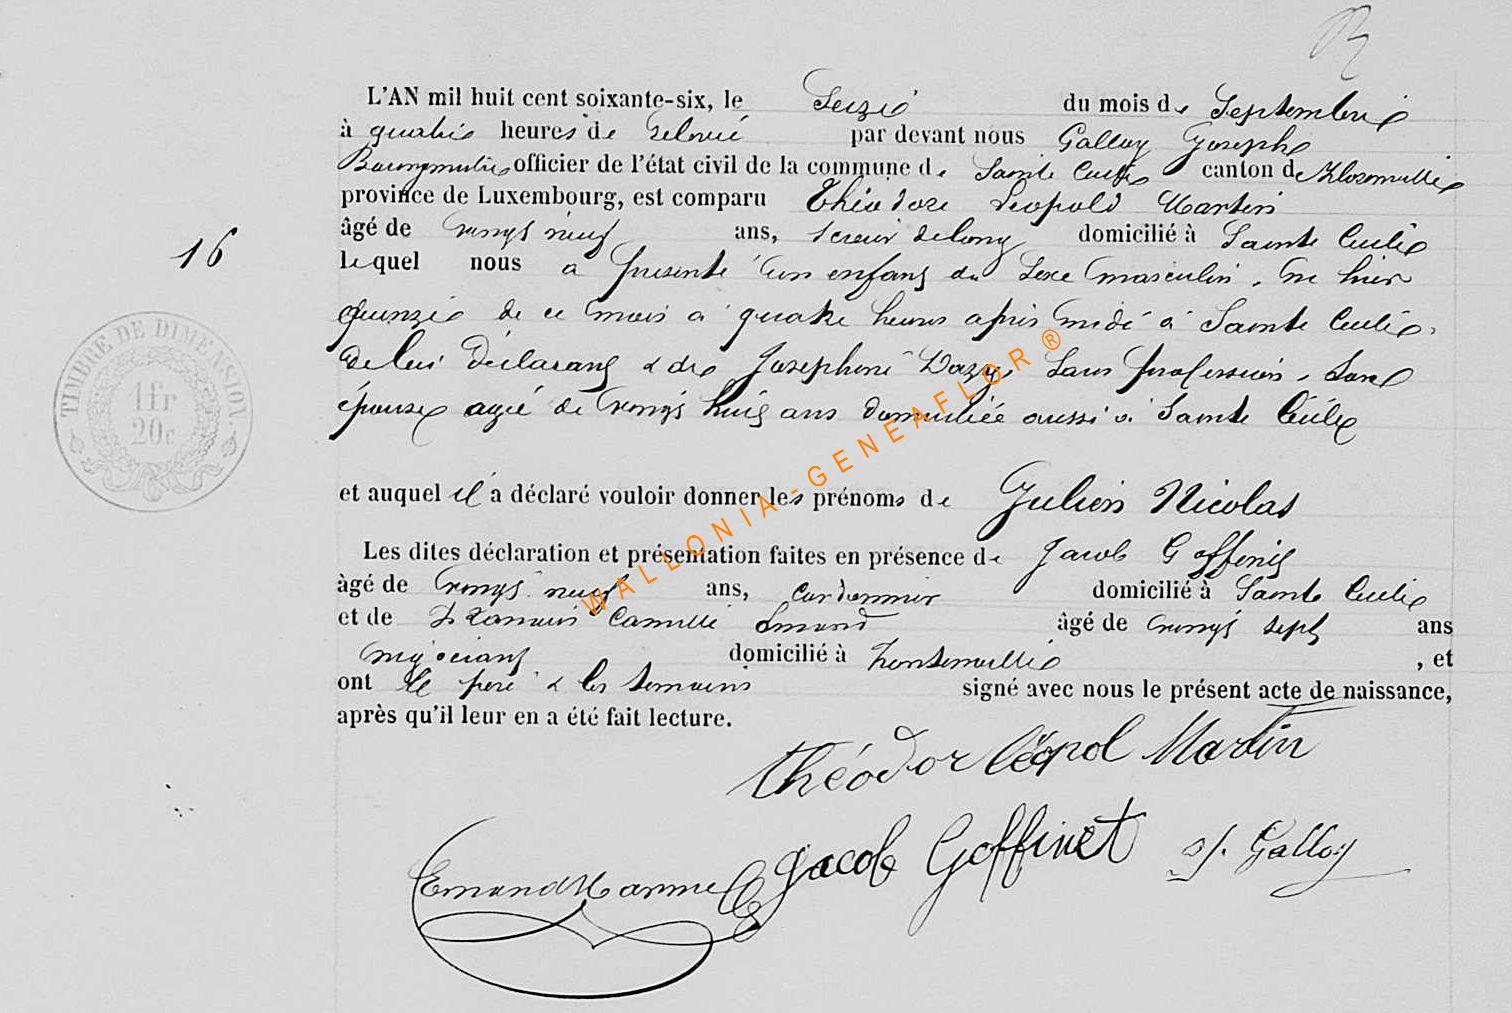 L'AN mil huit cent soixante-six, le Seize du mois de Septembre
à quatre heures de relevé par devant nous Galloy Joseph
Bourgmestre officier de l'état civil de la commune de Sainte Cecile canton de
province de Luxembourg, est comparu Théodore Léopold Martin
16
âgé de vingt neuf ans, scieur de long domicilié à Sainte Cecile
lequel nous a présenté un enfant du Sexe masculin, né hier
quinze de ce mois à quatre heures après midi à Sainte Cecile,
TIMBRE DE DIMENSION.
1fr
20c
de lui déclarant & de Josephine Dozy, Sans profession, Son
épouse agée de vingt huit ans domiciliée aussi à Sainte Cécile
et auquel il a déclaré vouloir donner les prénoms de Julien Nicolas
Les dites déclaration et présentation faites en présence de Jacob Goffinet
âgé de vingt neuf ans, cordonnier domicilié à Sainte Cecile
et de Camille Emond âgé de vingt sept ans
négociant domicilié à , et
ont le père & les temoins signé avec nous le présent acte de naissance,
après qu'il leur en a été fait lecture.
théodor léopol Martin
Jacob Goffinet J. Galloy
WALLONIA-GENEAFLOR®